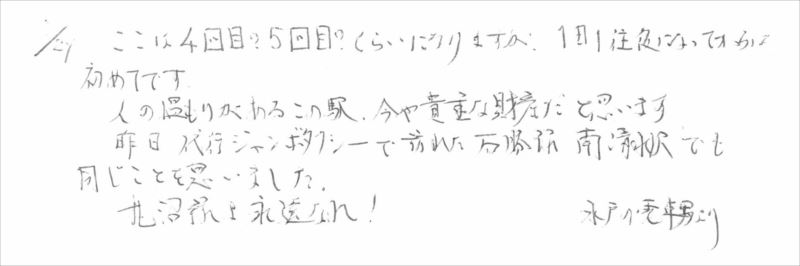 ここは4回目?5回目?くらいになりますが、1日1往復になってからは
初めてです.
人の温もりがあるこの駅、今や貴重な財産だと思います
昨日 代行ジャンボタクシーで訪れた石勝線 南清水沢でも
同じことを思いました.
札沼線よ永遠なれ!
水戸の電車男より